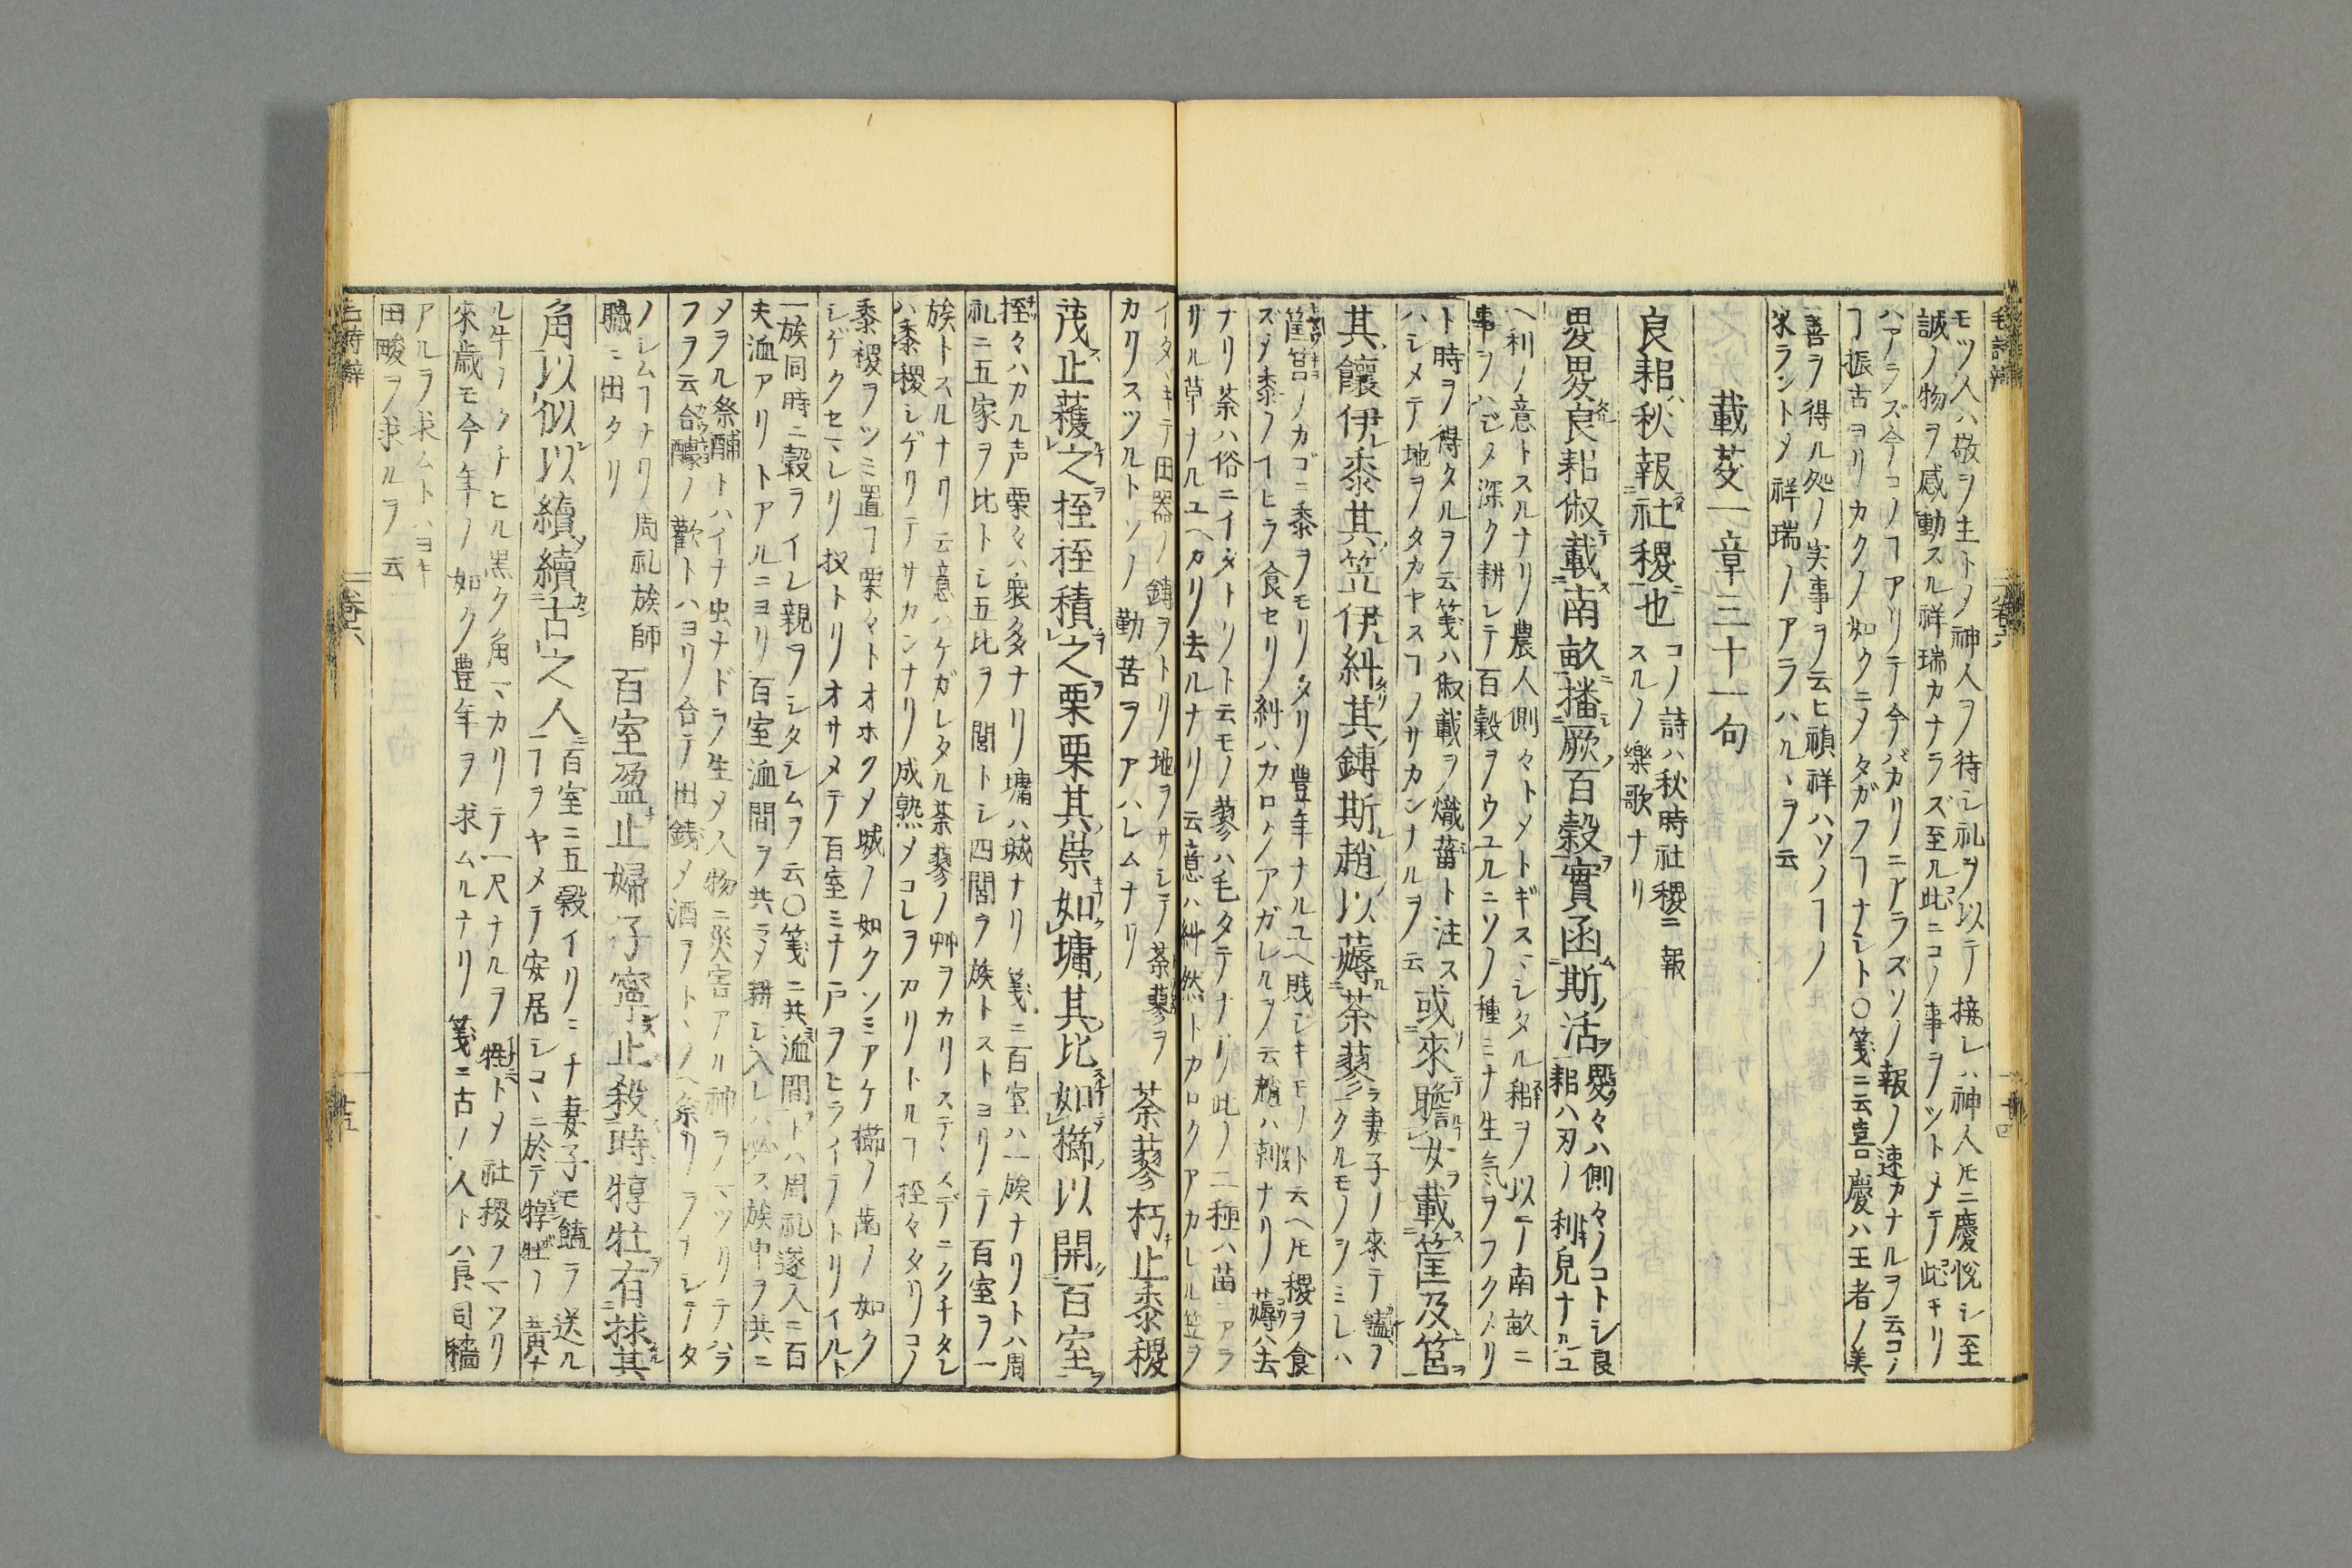 毛詩辨
卷六
モツ人ハ敬ヲ主トメ神人ヲ待シ礼ヲ以テ接レハ神人㕝ニ慶悅シ至
誠ノ物ヲ感動スル祥瑞カナラズ至ル此ニコノ事ヲツトメテ此キリ
ハアラズ今コノヿアリテ今バカリニアラズソノ報ノ速カナルヲ云コノ
ヿ振古ヨリカクノ如クニメタガフヿナシト○箋ニ云喜慶ハ王者ノ美
善ヲ得ル処ノ実事ヲ云ヒ禎祥ハソノヿノ
來ラントメ祥瑞ノアラハルヽヲ云
載芟一章三十一句
良耜秋報社稷也
コノ詩ハ秋時社稷ニ報
スルノ樂歌ナリ
畟畟良耜俶載南畝播厥百穀實函斯活
畟々ハ側々ノコトシ良
耜ハ刃ノ利皃ナルユ
ヘ利ノ意トスルナリ農人側々トメトギスマシタル耜ヲ以テ南畝ニ
事ヲハジメ深ク耕シテ百穀ヲウユルニソノ種ミナ生気ヲフクメリ
ト時ヲ得タルヲ云箋ハ俶載ヲ熾菑ト注ス
ハシメテ地ヲノタカヤスヿノサカンナルヲ云
或來瞻女載筐及筥
其饟伊黍其笠伊糾其鎛斯趙以薅荼蓼
妻子ノ來テ饁ヲ
クルモノヲミレハ
筐筥ノカゴニ黍ヲモリタリ豊年ナルユヘ賎シキモノト云ヘ㕝稷ヲ食
ズメ黍ノイヒラ食セリ糾ハカロクアガレルヲ云趙ハ刺ナリ薅ハ去
ナリ荼ハ俗ニイタトリト云モノ蓼ハ毛タテナリ此ノ二種ハ苗ニアラ
サル草ナルユヘカリ去ルナリ云意ハ糾然トカロクアカレル笠ヲ
イタヽキテ田器ノ鎛ヲトリ地ヲサシテ荼蓼ヲ
カリスツルトソノ勤苦ヲアハレムナリ
荼蓼朽止黍稷
茂止穫之挃挃積之栗栗其崇如墉其比如櫛以開百室
挃々ハカル声栗々ハ衆多ナリ墉ハ城ナリ箋ニ百室ハ一族ナリトハ周
礼ニ五家ヲ比トシ五比ヲ閭トシ四閭ヲ族トストヨリテ百室ヲ一
族トスルナリ云意ハケガレタル荼蓼ノ艸ヲカリステヽスデニクチタレ
ハ黍稷シゲリテサカンナリ成熟メコレヲカリトルヿ挃々タリコノ
黍稷ヲツミ置ヿ栗々トオホクメ城ノ如クソミアケ櫛ノ歯ノ如ク
シゲクセマレリ扠トリオサメテ百室ミナ戸ヲヒライテトリイルト
一族同時ニ穀ヲイレ親ヲシタシムヲ云○箋ニ共洫間トハ周礼遂人ニ百
夫洫アリトアルニヨリ百室洫間ヲ共ニメ耕シ入レハ必ス族中ヲ共ニ
メヲル祭酺トハイナ虫ナドラノ生メ人物ニ災害アル神ヲマツリテハラ
フヲ云合醵ノ歡トハヨリ合テ出銭メ酒ヲトヽノヘ祭リヲナシテタ
ノシムヿナリ周礼族師
職ニ出タリ
百室盈止婦子寧止殺時犉牡有捄其
角以似以續續古之人
百室ニ五穀イリミチ妻子モ饁ヲ送ル
ヿヲヤメテ安居シコヽニ於テ犉牡ノ黄ナ
ル牛ノクチヒル黒ク角マカリテ一尺ナルヲ犠トメ社稷ヲマツリ
來歳モ今年ノ如ク豊年ヲ求ムルナリ箋ニ古ノ人トハ良司穡
アルヲ求ムトハヨキ
田畯ヲ求ルヲ云
毛詩辨
卷六
十五